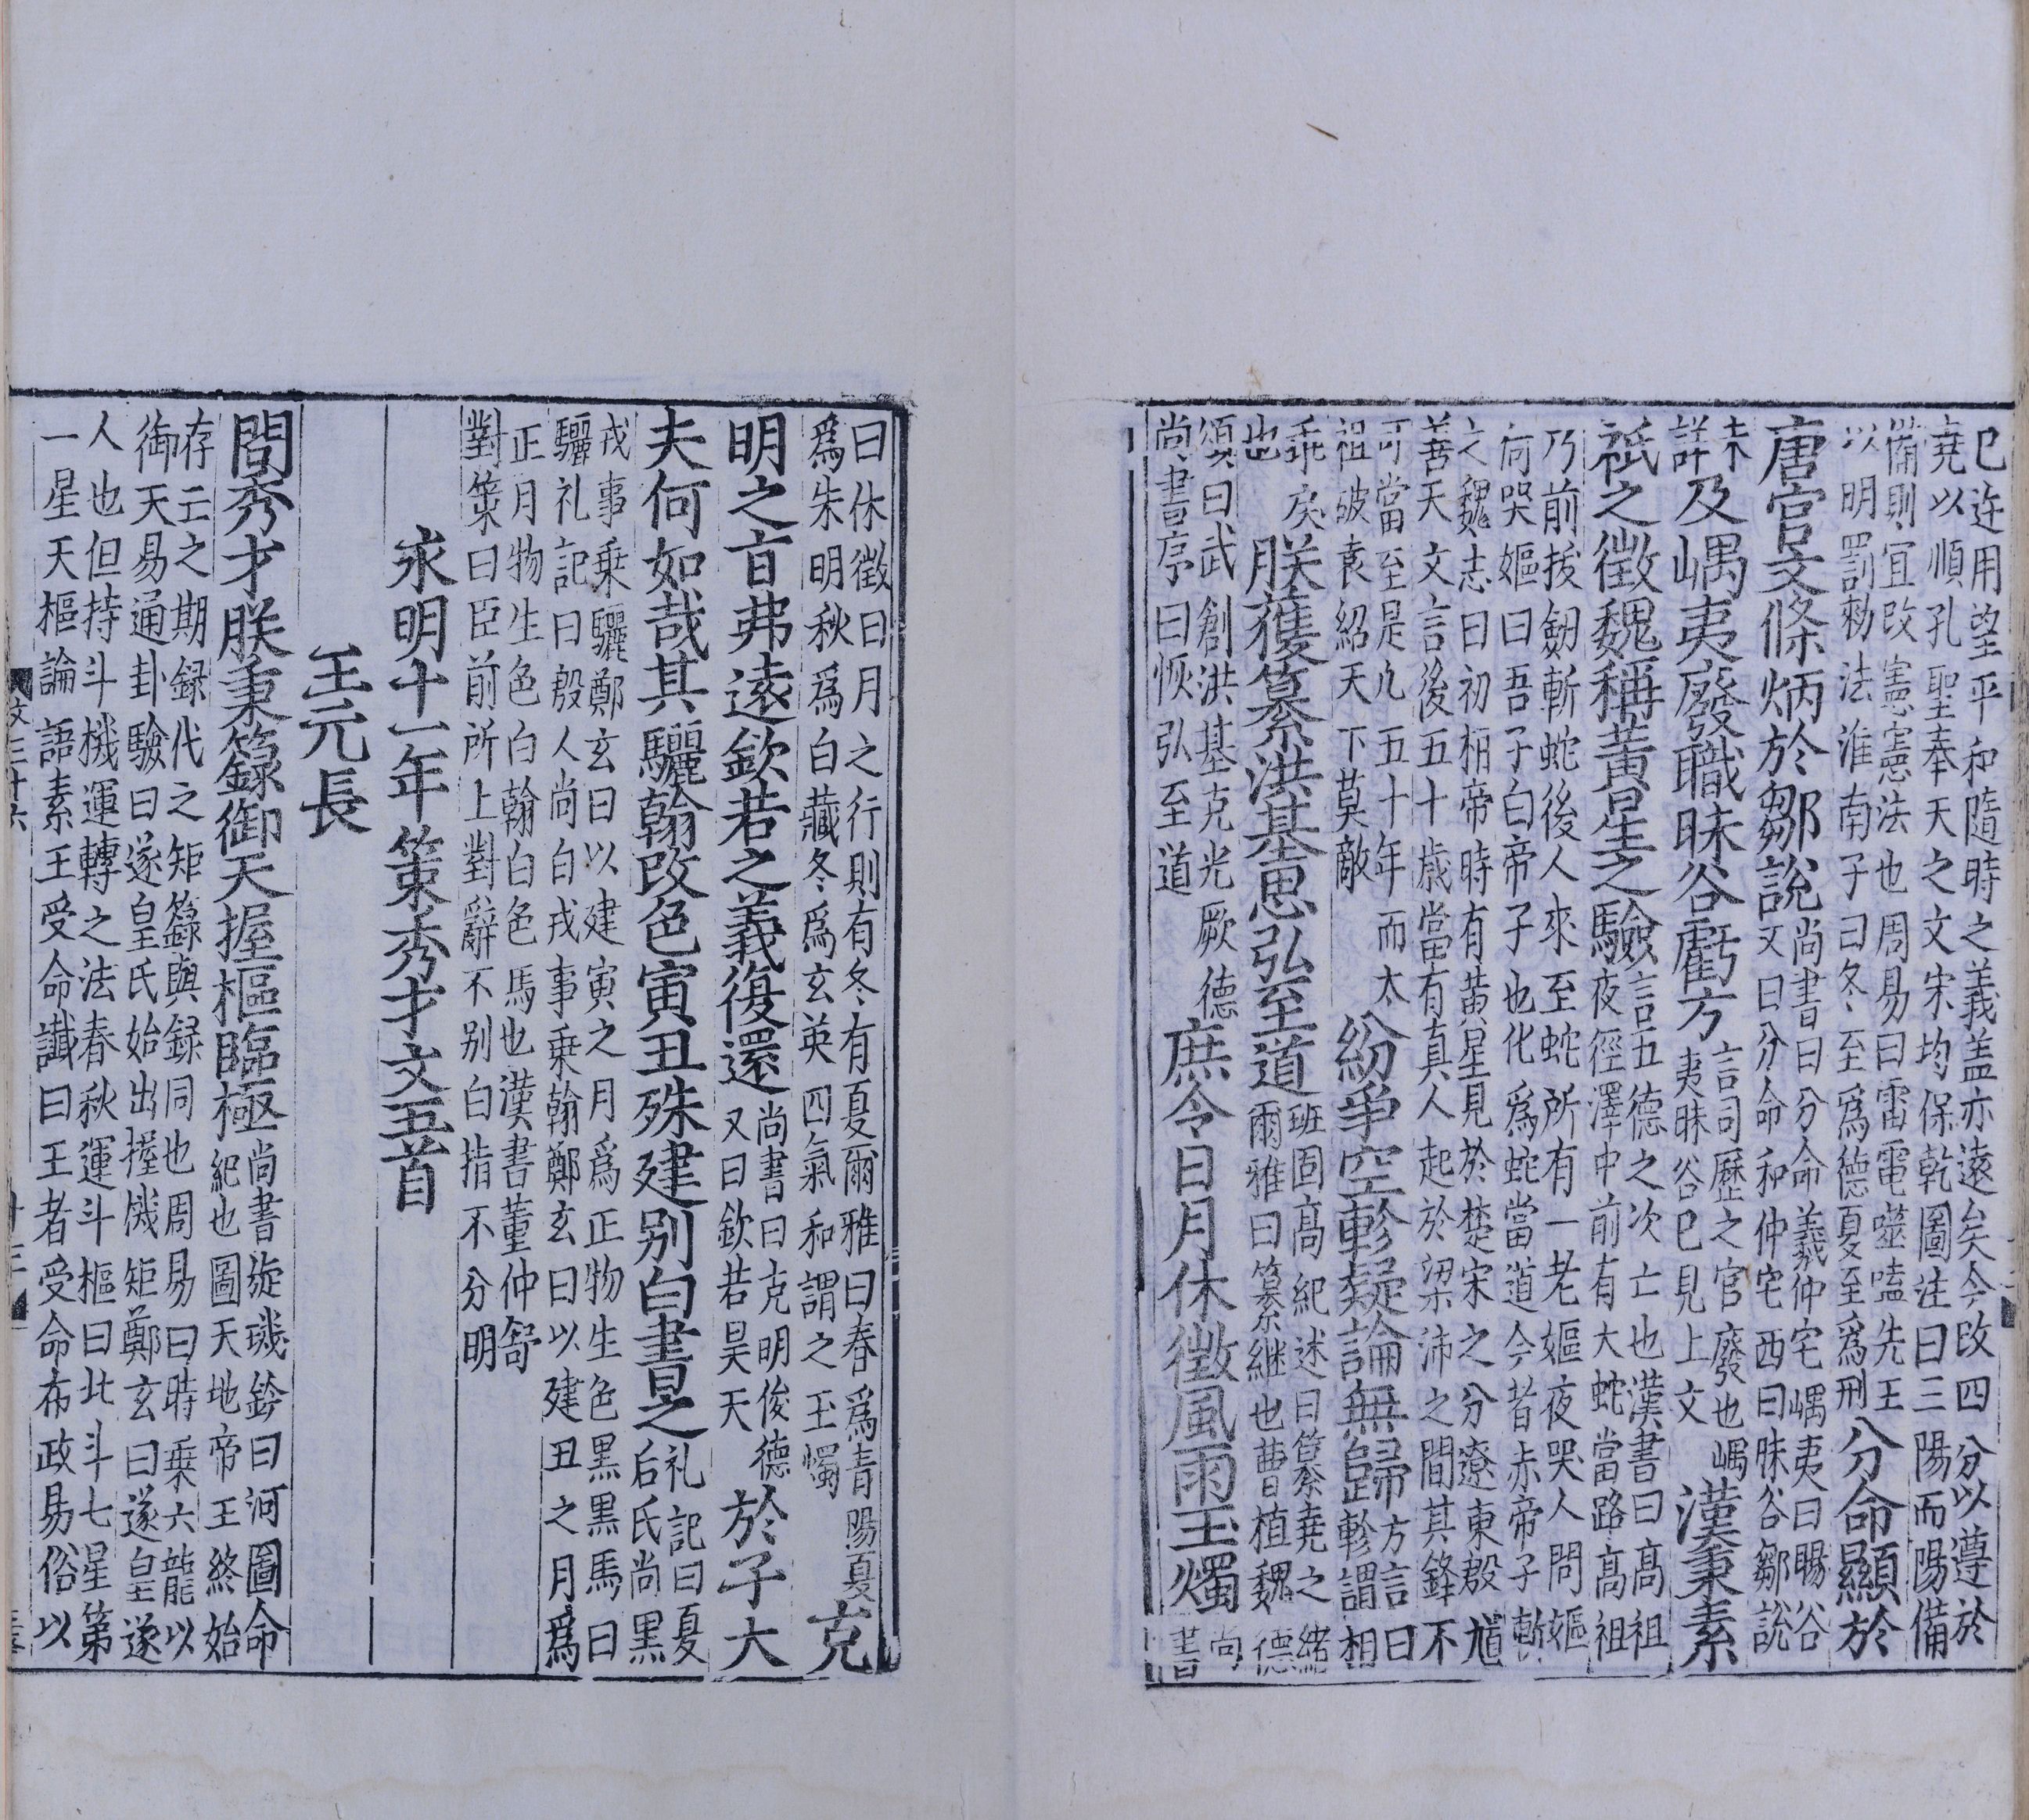 已許用望平和隨時之義盖亦遠矣今改四分以遵於
堯以順孔聖奉天之文宋均保乾圖注曰三陽而陽備
備則宜改憲憲法也周易曰雷電噬嗑先王
以明罰勑法淮南子曰冬至爲德夏至爲刑
分命顯於
唐官文條炳於鄒說
尚書曰分命羲仲宅嵎夷曰暘谷
又曰分命和仲宅西曰昧谷鄒說
未
詳
及嵎夷廢職昧谷虧方
言司歷之官廢也嵎
夷昧谷已見上文
漢秉素
祇之徵魏稱黃星之驗
言五德之次亡也漢書曰高祖
夜徑澤中前有大蛇當路高祖
乃前拔劒斬蛇後人來至蛇所有一老嫗夜哭人問嫗
何哭嫗曰吾子白帝子也化爲蛇當道今者赤帝子斬
之魏志曰初桓帝時有黃星見於楚宋之分遼東殷馗
善天文言後五十歲當有真人起於梁沛之間其鋒不
可當至是凡五十年而太
祖破袁紹天下莫敵
紛爭空軫疑論無歸
方言曰
軫謂相
乖戾
也
朕獲纂洪基思弘至道
班固高紀述曰纂堯之緒
爾雅曰纂継也曹植魏德
頌曰武創洪基克光厥德
尚書序曰恢弘至道
庶令日月休徵風雨玉燭
尚
書
曰休徵曰月之行則有冬有夏爾雅曰春爲青陽夏
爲朱明秋爲白藏冬爲玄英四氣和謂之玉燭
克
明之旨弗遠欽若之義復還
尚書曰克明俊德
又曰欽若昊天
於子大
夫何如哉其驪翰改色寅丑殊建别白書之
礼記曰夏
后氏尚黑
戎事乗驪鄭玄曰以建寅之月爲正物生色黑黑馬曰
驪礼記曰殷人尚白戎事乗翰鄭玄曰以建丑之月爲
正月物生色白翰白色馬也漢書董仲舒
對策曰臣前所上對辭不别白指不分明
永明十一年策秀才文五首
王元長
問秀才朕秉籙御天握樞臨極
尚書旋璣鈐曰河圖命
紀也圖天地帝王終始
存亡之期録代之矩籙與録同也周易曰時乗六龍以
御天易通卦驗曰遂皇氏始出握機矩鄭玄曰遂皇遂
人也但持斗機運轉之法春秋運斗樞曰北斗七星第
一星天樞論語素王受命讖曰王者受命布政易俗以
文三十六
十三